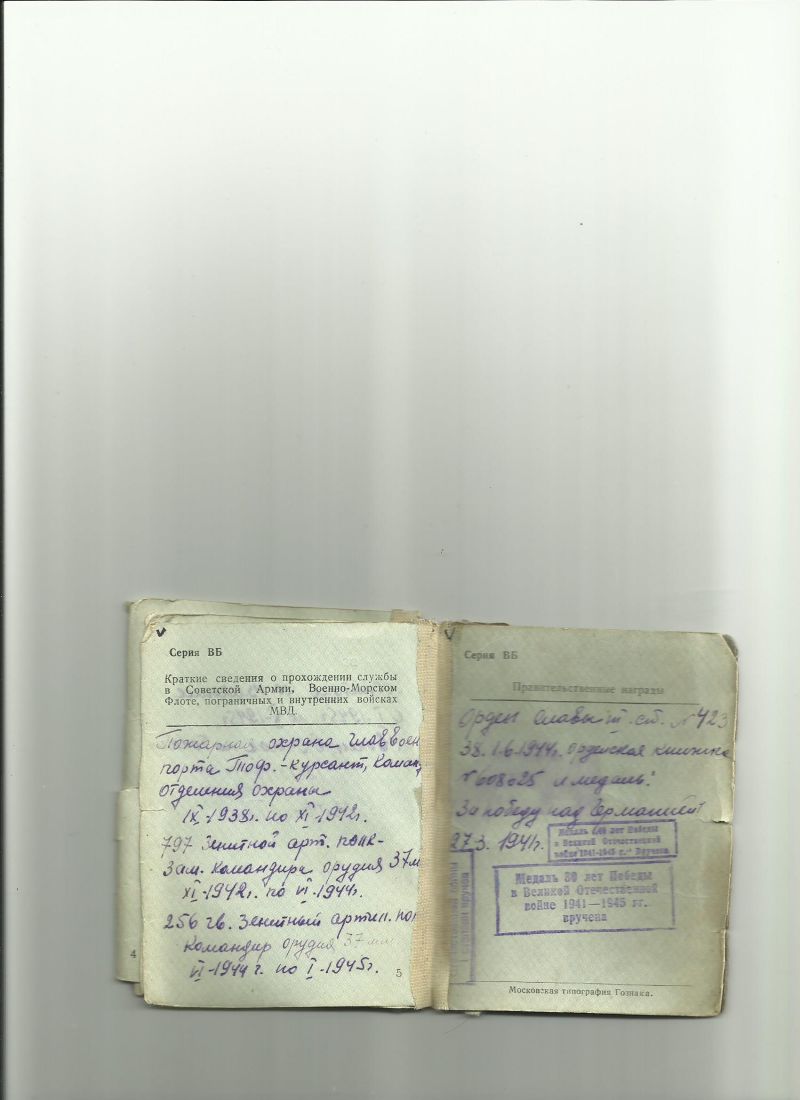 Серия ВБ
Краткие сведения о прохождении службы
в Советской Армии, Военно-Морском
Флоте, пограничных и внутренних войсках
МВД.
Пожарная охрана главвоен
порта Тоф.-курсант, Команд
отделения охраны
IX-1938г. по XI-1942г.
797 Зенитной арт. полк-
Зам. Командира орудия 37м
XI-1942г. по VI-1944г.
256 гв. Зенитный артил. пол
Командир орудия 37 мм
VI-1944 г. по I-1945г.
4
5
Серия ВБ
Правительственные награды
Орден Славы III ст. №423
38. 1.6.1944г. орденская книжка
№ 608025 и медаль:
За победу над Германией
27.3. 1941г.
Медаль лет Победы
в Великой Отечественной
войне 1941-1945 г.г." Вручена
Медаль 30 лет Победы
в Великой Отечественной
войне 1941—1945 гг.
вручена
Московская типография Гознака.